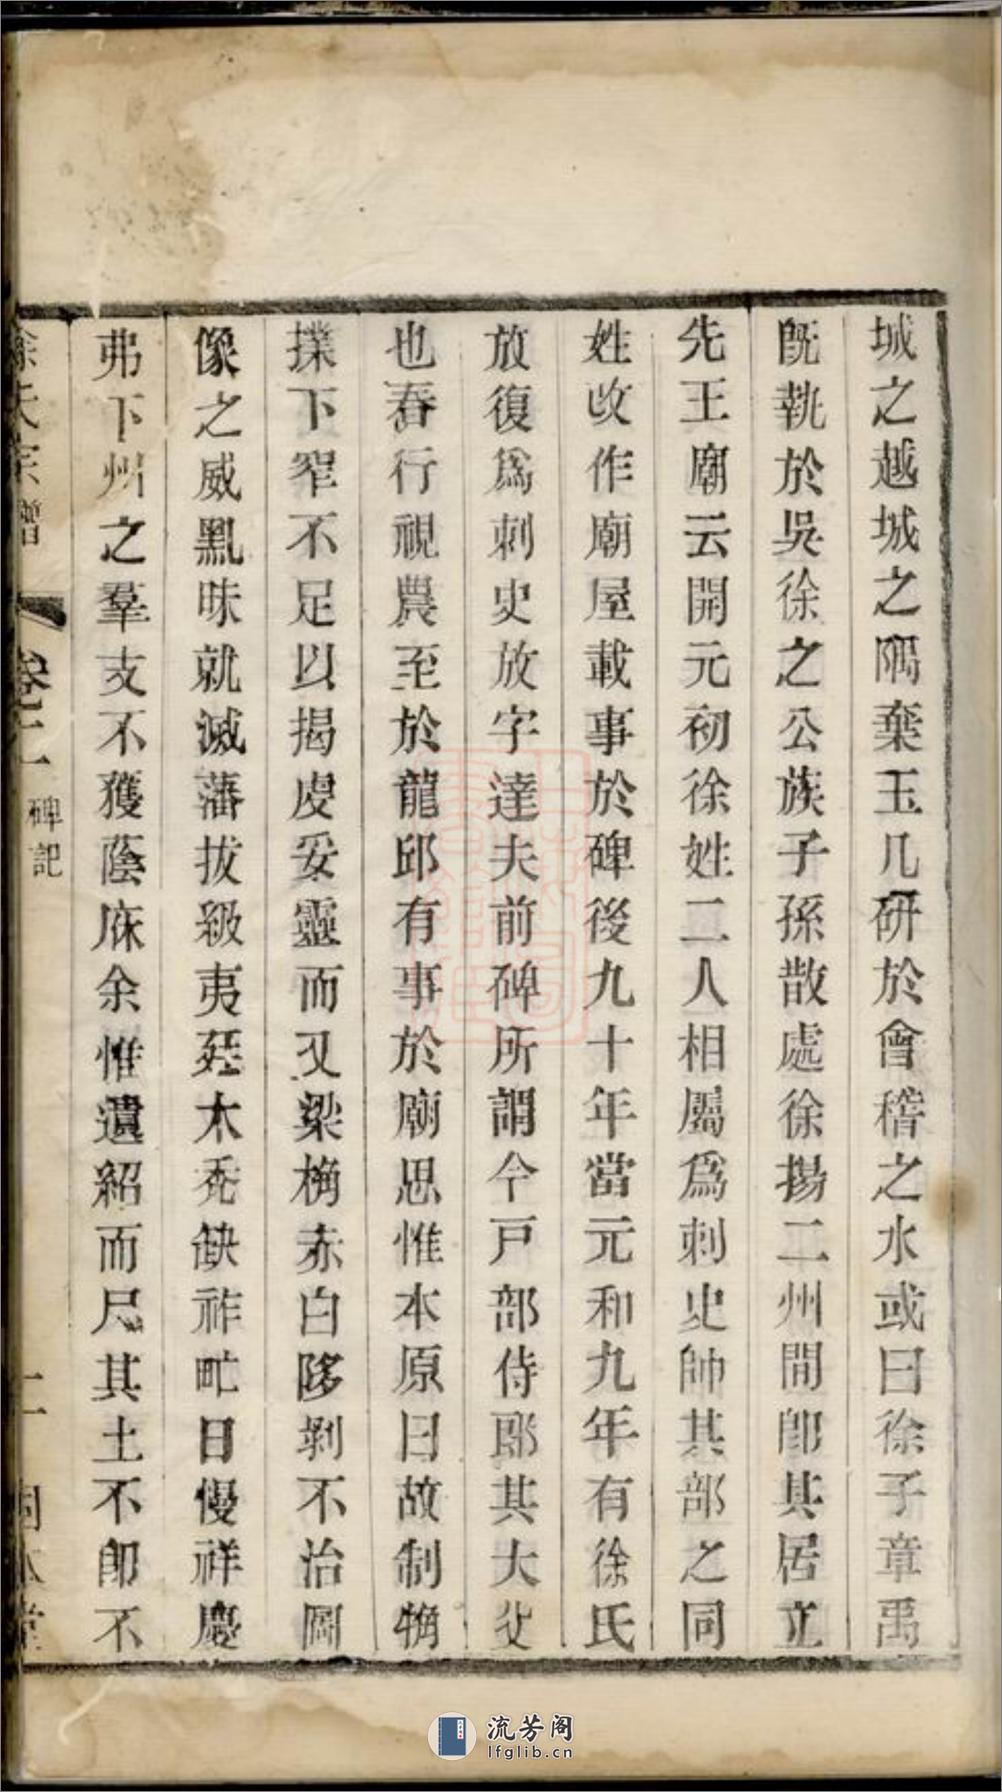 城之越城之隅棄玉几研於會稽之水或曰徐子章禹
既執於吳徐之公族子孫散處徐揚二州間卽其居立
先王廟云開元初徐姓二人相屬爲刺史帥其部之同
姓改作廟屋載事於碑後九十年當元和九年有徐氏
放復爲刺史放字達夫前碑所謂今戸部侍郎其大父
也春行視農至於龍邱有事於廟思惟本原曰故制觕
撲下窄不足以揭虔妥靈而又梁桷赤白陊剝不治圖
像之威黑昧就滅藩拔級夷庭木禿缺祚甿日慢祥慶
弗下州之羣支不獲蔭庥余惟遺紹而尺其土不卽不
徐氏宗譜
卷二
碑記
二
固本堂
流芳阁
lfglib.cn